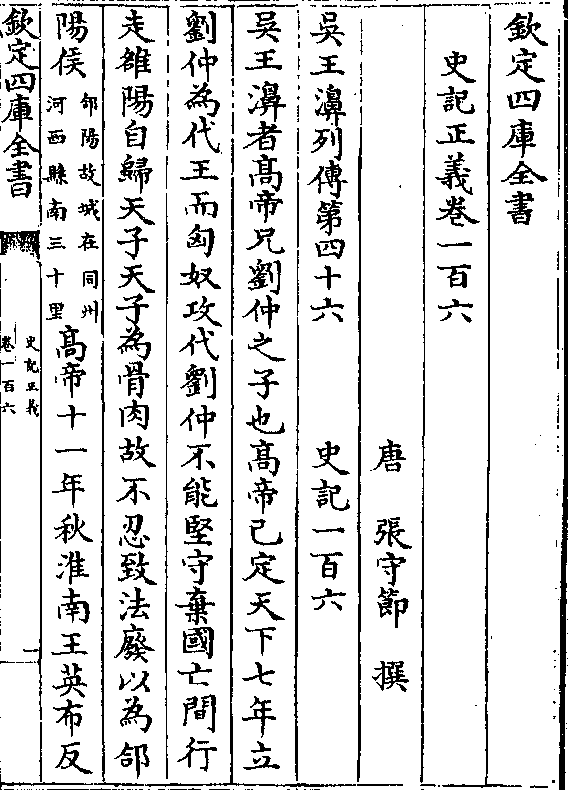 欽定四庫全書
史記正義卷一百六
唐 張守節 撰
吳王濞列傳第四十六 史記一百六
吳王濞者髙帝兄劉仲之子也髙帝已定天下七年立
劉仲為代王而匈奴攻代劉仲不能堅守棄國亡間行
走雒陽自歸天子天子為骨肉故不忍致法廢以為郃
陽侯 郃陽故城在同州河西縣南三十里 髙帝十一年秋淮南王英布反
欽定四庫全書
史記正義
卷一百六
一